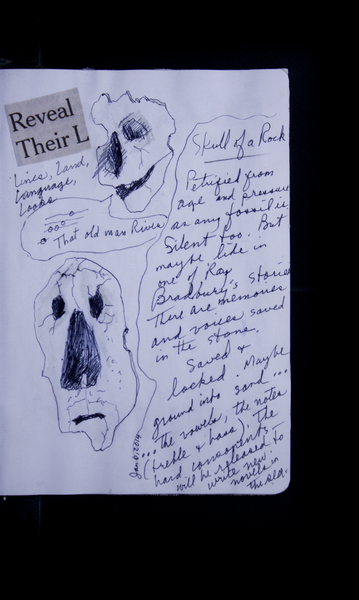 Reveal
Their L
Lines, Land,
Language,
Looks
That old man River
Skull of a Rock
Petrified from
age and pressure
as any fossil is
Silent too. But
maybe like in
one of Ray
Bradbury's Stories
There are memories
and voices saved
in the stone.
Saved &
locked. Maybe
ground into sand...
...the vowels, the notes
(treble & bass), the
hard consonants
will be released to
write new
novels in
the old.
Jan 6, 2014